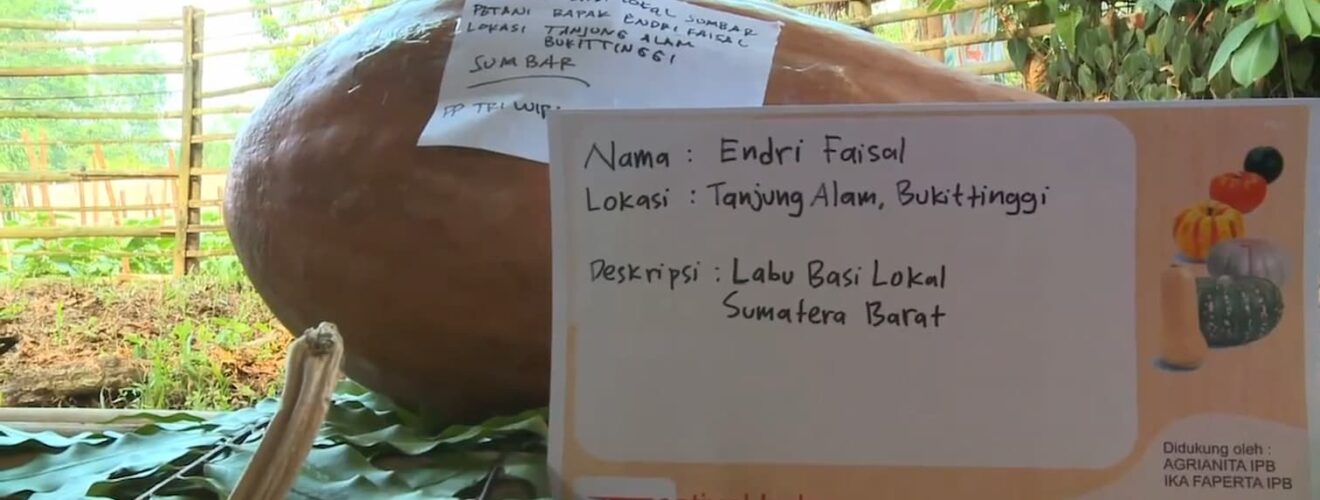 LOKAL SUMBAR
PETANI BAPAK ENDRI FAISAL
LOKASI TANJUNG ALAM
BUKITTINGGI
SUMBAR
Nama : Endri Faisal
Lokasi : Tanjung Alam, Bukittinggi
Deskripsi : Labu Basi Lokal
Sumatera Barat
Didukung oleh :
AGRIANITA IPB
IKA FAPERTA IPB